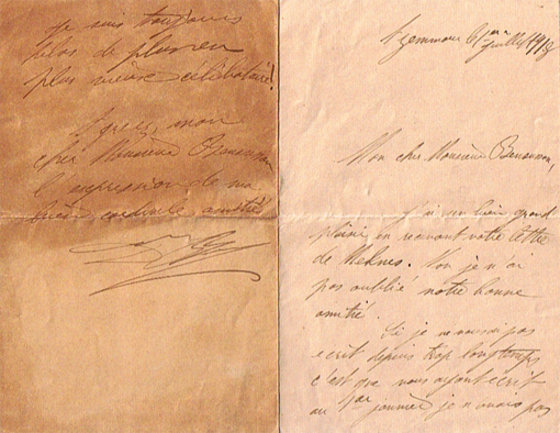 Je suis toujours
plus de plus en
plus vieux célibataire!
Agréez, mon
cher Monsieur
l'expression de ma
bien cordiale amitié
Azemmour le 1er juillet 1918
Mon cher Monsieur
J'ai eu bien grand
plaisir en recevant votre lettre
de Meknes. Non je n'ai
pas oublié notre bonne
amitié.
Si je ne vous ai pas
ecrit depuis trop longtemps
c'est que vous ayant écrit
au 1er je n'avais pas